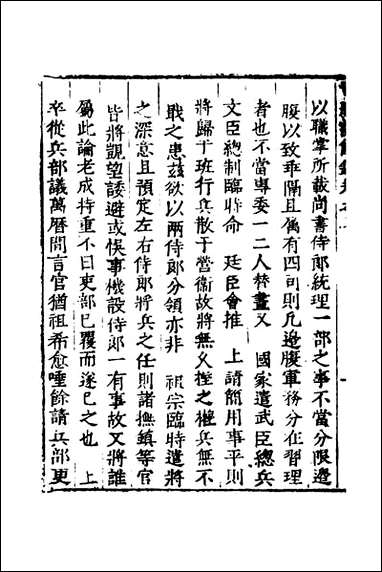 以職掌所載尚書侍郎統理一部之事不當分限邊
腹以致乖隔且偶有四司則凡邊腹軍務分在習理
者也不當專委一二人替畫又　國家遣武臣總兵
文臣總制臨時命　廷臣會推　上請簡用事平則
將歸于班行兵散于營衞故將無乂握之權兵無不
戢之患茲欲以兩侍郎分領亦非　祖宗臨時遣將
之深意且預定左右侍郎將兵之任則諸撫鎮等官
皆將觀望諉避或悞事機設侍郎一有事故又將誰
屬此論老成持重不曰吏部已覆而遂已之也　上
卒從兵部議萬曆間言官猶祖希愈唾餘請兵部更